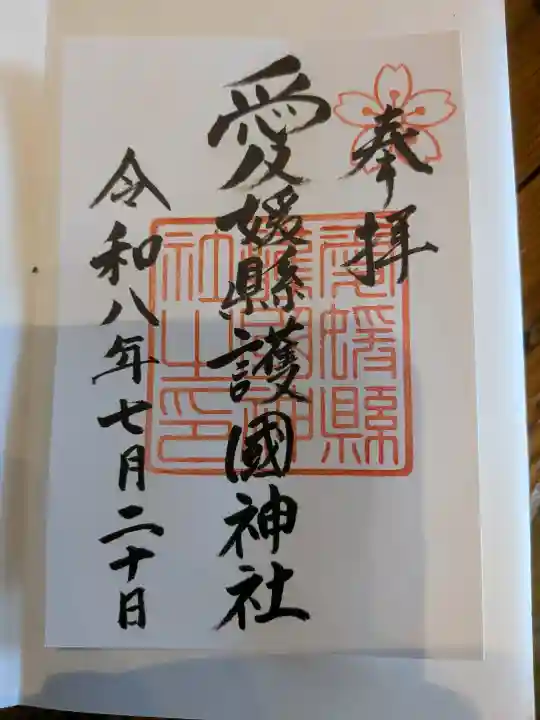 奉拝
愛媛縣護國神社
令和八年七月二十日
愛媛縣
護國神
社之印